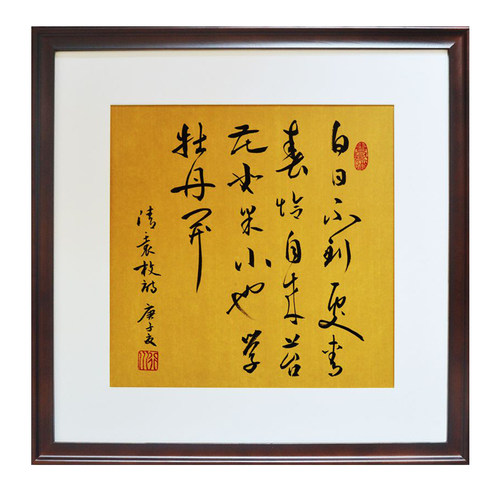 白日不到處青
春恰自来苔
花如米小也学
牡丹開
清袁枚詩 庚子